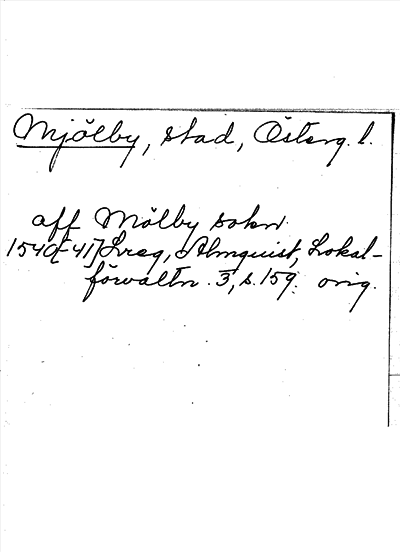 Mjölby, stad, Österg. l.
aff Mölby sokn
1540[-41] Lreg, Almquist, Lokal-
förvaltn. 3, s. 159. orig.